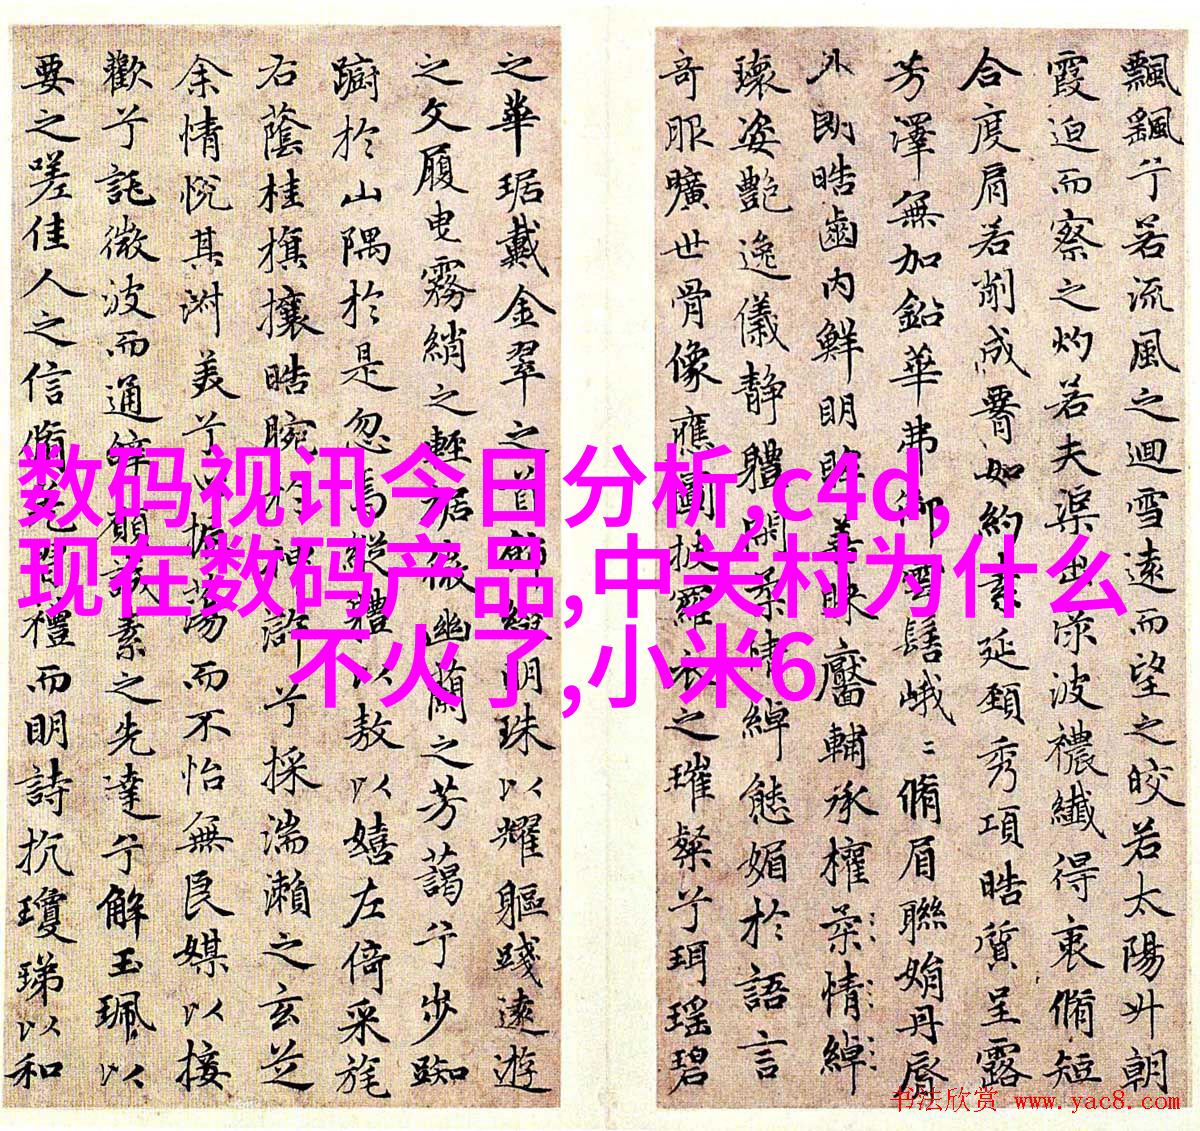 飄飖兮若流風之迴雪遠而望之皎若太陽升朝
霞迫而察之灼若夫渠出淥波襛纖得衷脩短
合度肩若削成如約素延頸秀項皓質呈露
芳澤無加鉛華弗御雲髻峨〻脩眉聯娟丹唇
外朗皓齒内鮮明眸善睞靨輔承權柔情綽
瓌姿艷逸儀靜體閑柔情綽態媚於語言
奇服曠世骨像應圖披羅衣之璀粲兮珥瑤碧
之華琚戴金翠之首飾綴明珠以耀軀踐遠遊
之文履曳霧綃之輕裾微幽蘭之芳藹兮步踟
躕於山隅於是忽焉縱體以敖以嬉左倚采旄
右蔭桂旗攘皓腕於神滸兮採湍瀨之玄芝
余情悅其淑美兮心振蕩而不怡無良媒以接
歡兮託微波而通辭願誠素之先達兮解玉珮以
要之嗟佳人之信脩羌習禮而明詩抗瓊珶以和
数码视讯今日分析,c4d,
现在数码产品,中关村为什么
不火了,小米6
书法欣赏 www.yac8.com